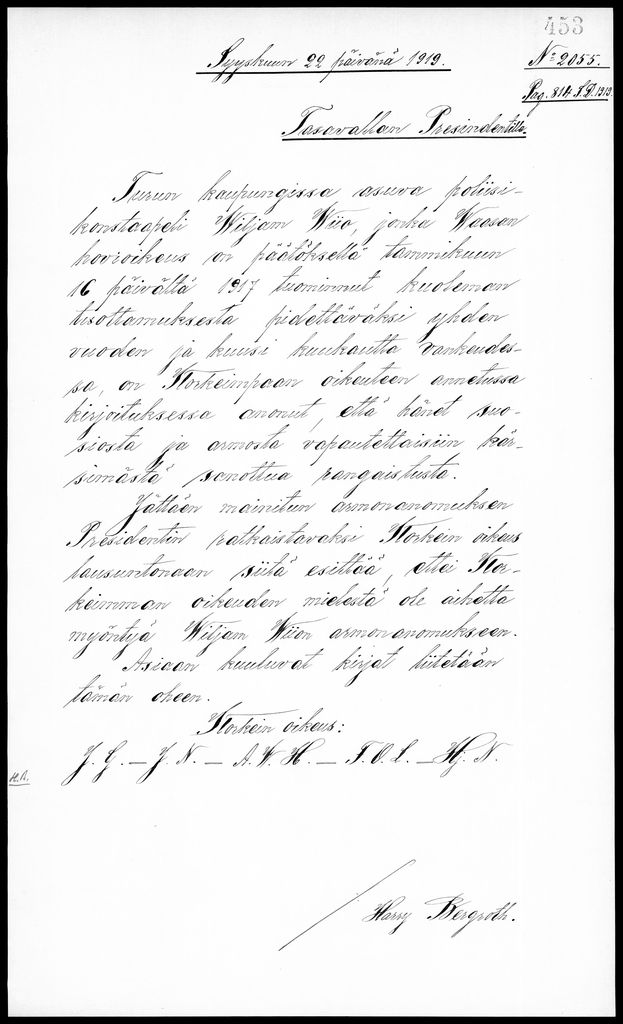 453
Syyskuun 22 päivänä 1919.
No 2055.
Pag. 814 S.D. 1919.
Tasavallan Presindentille.
Turun kaupungissa asuva poliisi-
konstaapeli Wiljam Wiio, jonka Waasan
hovioikeus on päätöksellä tammikuun
16 päivältä 1917 tuominnut kuoleman
tuottamuksesta pidettäväksi yhden
vuoden ja kuusi kuukautta vankeudes-
sa, on Korkeimpaan oikeuteen annetussa
kirjoituksessa anonut, että hänet suo-
siosta ja armosta vapautettaisiin kär-
simästä sanottua rangaistusta.
Jättäen mainitun armonanomuksen
Presidentin ratkaistavaksi Korkein oikeus
lausuntonaan siitä esittää, ettei Kor-
keimman oikeuden mielestä ole aihetta
myöntyä Wiljam Wiion armonanomukseen.
Asiaan kuuluvat kirjat liitetään
tämän oheen.
Korkein oikeus:
J. G. — J. N. — A. W. H. — F. O. L. — Hj. N.
H.B.
Harry Bergroth.